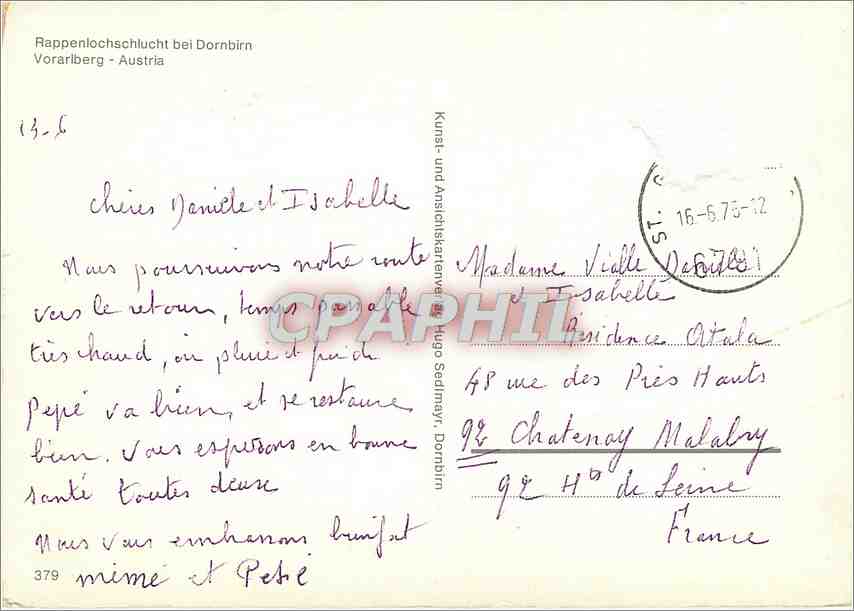 Rappenlochschlucht bei Dornbirn
Vorarlberg - Austria
13-6
Chères Danièle et Isabelle
Nous poursuivons notre route
vers le retour, temps passable
très chaud, ou pluie et froid
Pepé va bien, et se restaure
bien. Vous esperons en bonne
santé toutes deux
Nous vous embrassons bien fort
mémé et Pepé
379
Kunst- und Ansichtskartenverlag Hugo Sedlmayr, Dornbirn
CPAPHIL
ST.
16.-6.76-12
Madame Vialle Danièle
et Isabelle
Résidence Atala
48 rue des Près Hauts
92 Chatenay Malabry
92 Hts de Seine
France